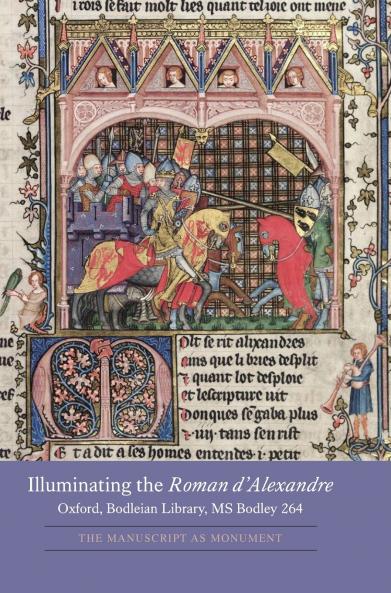 rois se fait molt lies quant tel ioie ont mene
le
Olt se rit alixandres
ains que li bries desplit
quant lot desploie
et lescripture uit
Donques se gaba plus
tans sen rist
E t a dit a ses homes entendes ·i· petit
Illuminating the Roman d'Alexandre
Oxford, Bodleian Library, MS Bodley 264
THE MANUSCRIPT AS MONUMENT